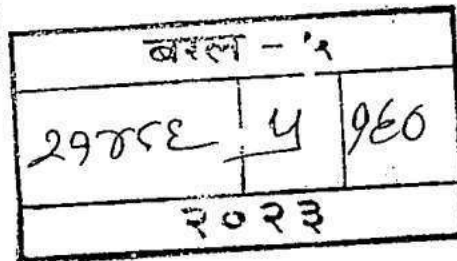 बरल - २
२१४८६ ५ १६०
२०२३